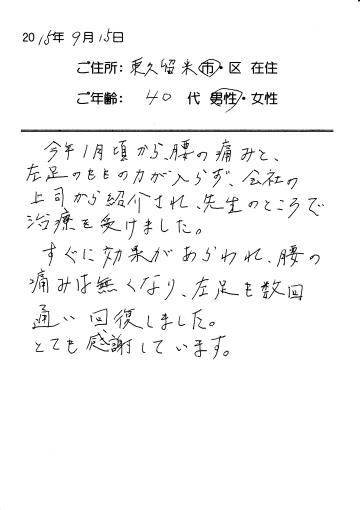 2015年 9月 15日
ご住所: 東久留米 市・区 在住
ご年齢: 40 代 男性・女性
今年1月頃から、腰の痛みと、
左足のももの力が入らず、会社の
上司から紹介され、先生のところで
治療を受けました。
すぐに効果があらわれ、腰の
痛みは無くなり、左足も数回
通い回復しました。
とても感謝しています。